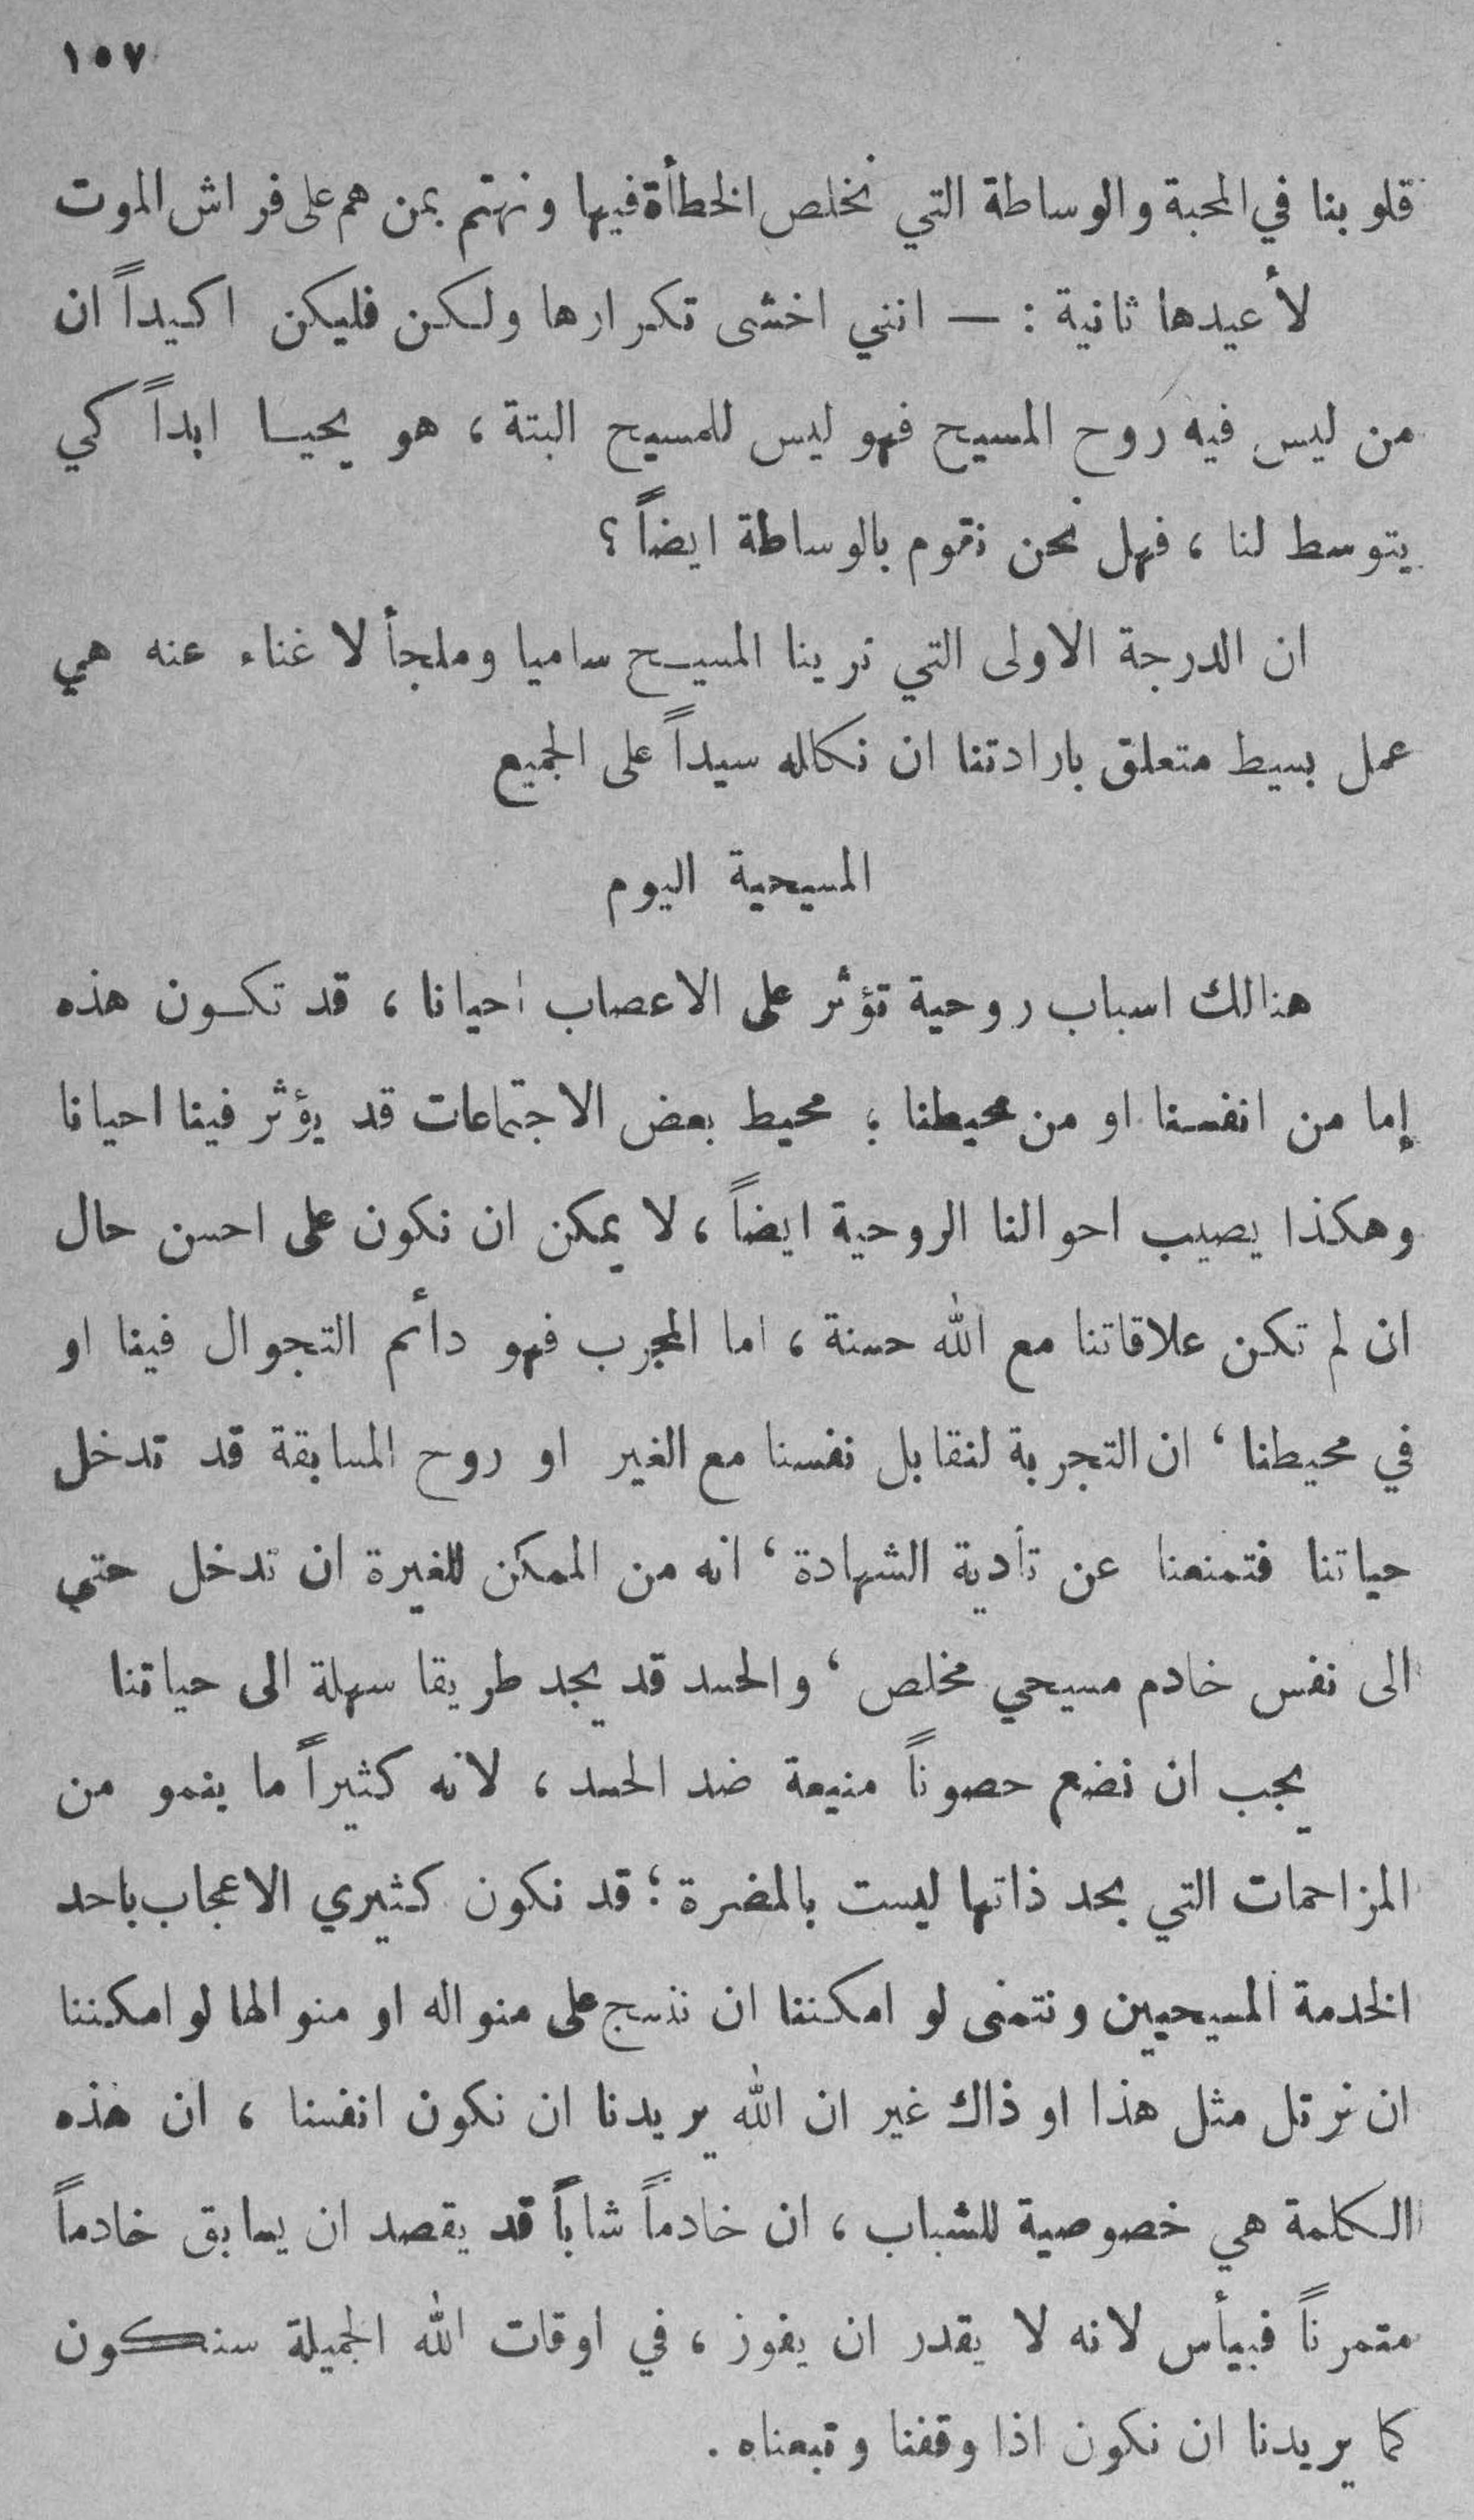 ١٥٧
قلوبنا في المحبة والوساطة التي نخلص الخطأة فيها ونهتم بمن هم على فراش الموت
لأعيدها ثانية : — انني اخشى تكرارها ولكن فليكن اكيداً ان
من ليس فيه روح المسيح فهو ليس للمسيح البتة ، هو يحيا ابداً كي
يتوسط لنا ، فهل نحن نقوم بالوساطة ايضاً ؟
ان الدرجة الاولى التي ترينا المسيح ساميا وملجأ لا غناء عنه هي
عمل بسيط متعلق بارادتنا ان نكلله سيداً على الجميع
المسيحية اليوم
هنالك اسباب روحية تؤثر على الاعصاب احيانا ، قد تكون هذه
إما من انفسنا او من محيطنا ؛ محيط بعض الاجتماعات قد يؤثر فينا احيانا
وهكذا يصيب احوالنا الروحية ايضاً ، لا يمكن ان نكون على احسن حال
ان لم تكن علاقاتنا مع الله حسنة ، اما المجرب فهو دائم التجوال فينا او
في محيطنا ، ان التجربة لنقابل نفسنا مع الغير او روح المسابقة قد تدخل
حياتنا فتمنعنا عن تأدية الشهادة ، انه من الممكن للغيرة ان تدخل حتى
الى نفس خادم مسيحي مخلص ، والحسد قد يجد طريقا سهلة الى حياتنا
يجب ان نضع حصوناً منيعة ضد الحسد ، لانه كثيراً ما ينمو من
المزاحمات التي بحد ذاتها ليست بالمضرة ؛ قد نكون كثيري الاعجاب باحد
الخدمة المسيحيين ونتمنى لو امكننا ان ننسج على منواله او منوالها لو امكننا
ان نرتل مثل هذا او ذاك غير ان الله يريدنا ان نكون انفسنا ، ان هذه
الكلمة هي خصوصية للشباب ، ان خادماً شاباً قد يقصد ان يسابق خادماً
متمرناً فييأس لانه لا يقدر ان يفوز ، في اوقات الله الجميلة سنكون
كما يريدنا ان نكون اذا وقفنا وتبعناه .